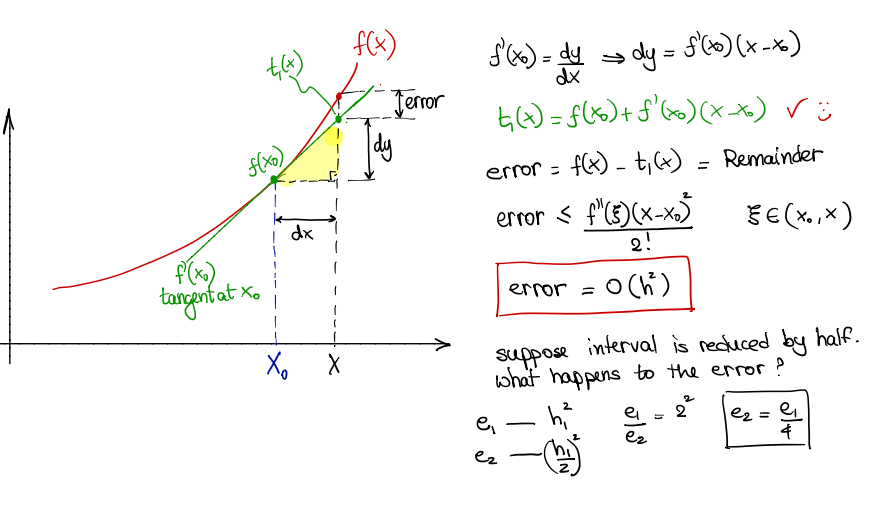 f(x)
t₁(x)
error
f(x₀)
dy
dx
f'(x₀)
tangent at x₀
X₀
X
f'(x₀) = dy/dx ⇒ dy = f'(x₀)(x-x₀)
t₁(x) = f(x₀) + f'(x₀)(x-x₀) ✓ :)
error = f(x) - t₁(x) = Remainder
error ≤ f''(ξ)(x-x₀)²/2! ξ ∈ (x₀, x)
error = O(h²)
suppose interval is reduced by half.
what happens to the error?
e₁ — h₁² e₁/e₂ = 2² e₂ = e₁/4
e₂ — (h₁/2)²